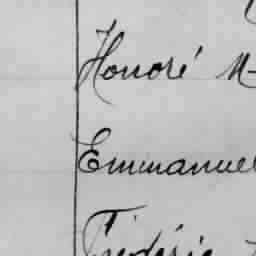 Honoré M
Emmanuel
Frédéric